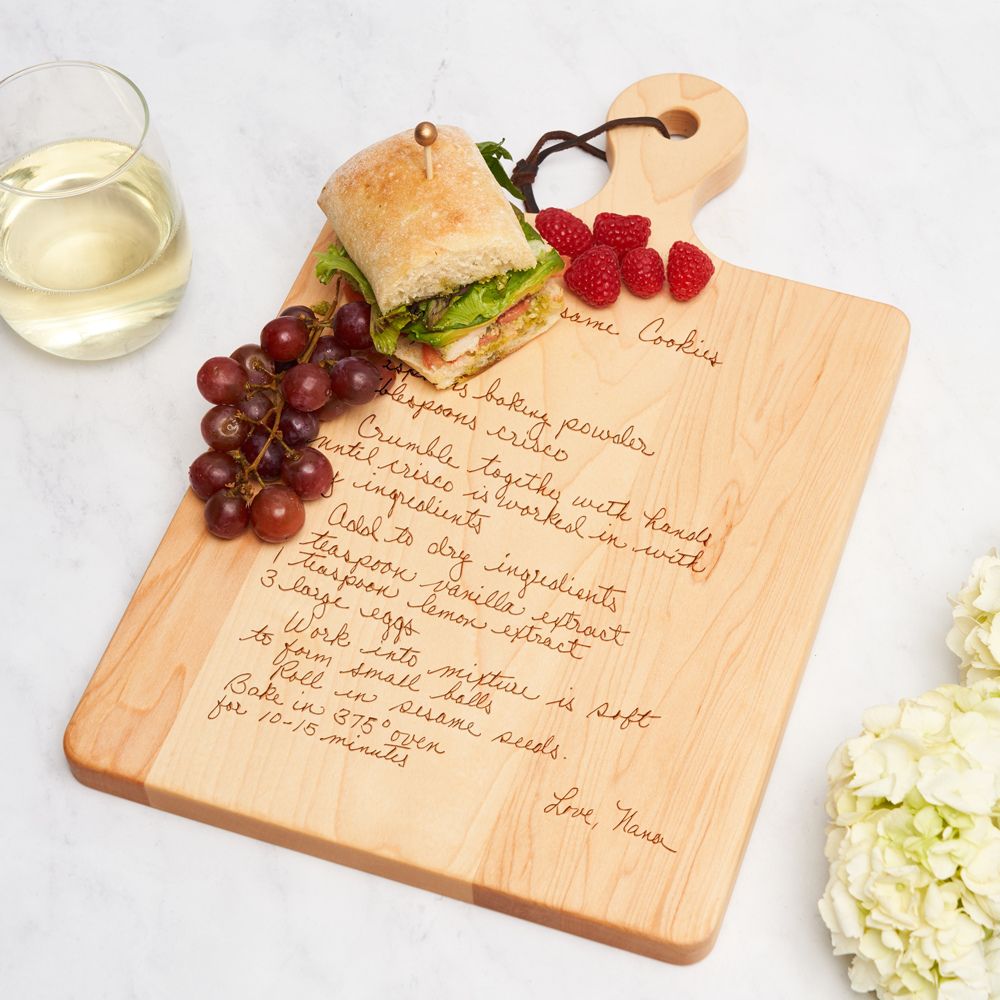 same Cookies
baking powder
blespoons crisco
Crumble together with hands
until crisco is worked in with
y ingredients
Add to dry ingredients
teaspoon vanilla extract
1 teaspoon lemon extract
3 large eggs
Work into mixture is soft
to form small balls
Roll in sesame seeds.
Bake in 375° oven
for 10-15 minutes
Love, Nana